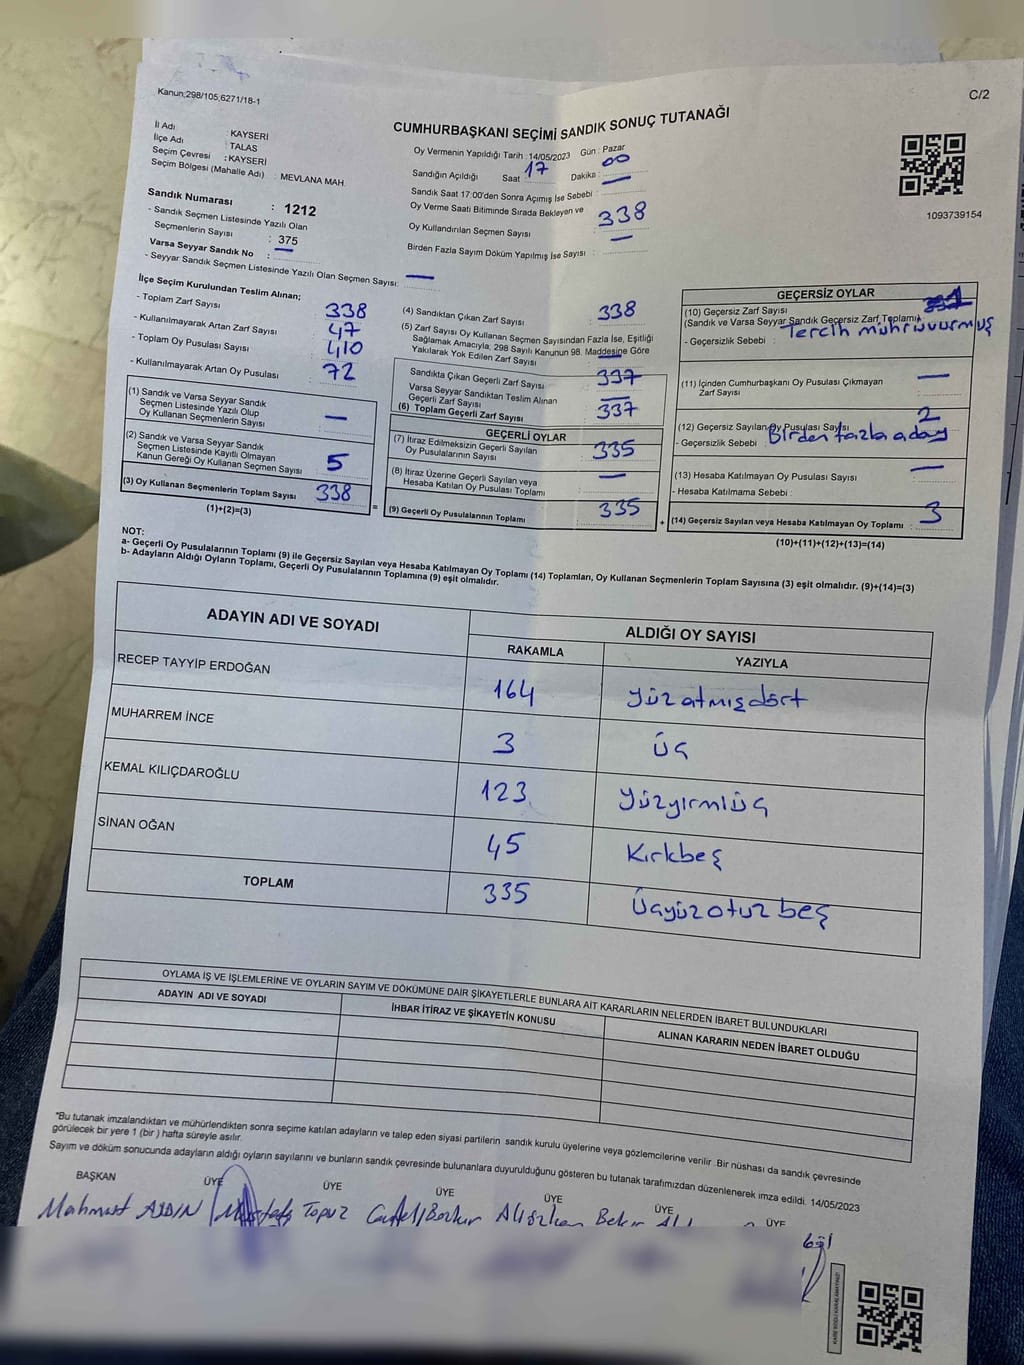 Kanun;298/105,6271/18-1
C/2
CUMHURBAŞKANI SEÇİMİ SANDIK SONUÇ TUTANAĞI
İl Adı : KAYSERİ
İlçe Adı : TALAS
Seçim Çevresi : KAYSERİ
Seçim Bölgesi (Mahalle Adı) : MEVLANA MAH.
Oy Vermenin Yapıldığı Tarih : 14/05/2023 Gün : Pazar
Sandığın Açıldığı Saat : 17 Dakika : 00
Sandık Saat 17:00'den Sonra Açımış İse Sebebi : —
Oy Verme Saati Bitiminde Sırada Bekleyen ve
Oy Kullandırılan Seçmen Sayısı : 338
Birden Fazla Sayım Döküm Yapılmış İse Sayısı : —
1093739154
Sandık Numarası : 1212
- Sandık Seçmen Listesinde Yazılı Olan
Seçmenlerin Sayısı : 375
Varsa Seyyar Sandık No : —
- Seyyar Sandık Seçmen Listesinde Yazılı Olan Seçmen Sayısı: —
İlçe Seçim Kurulundan Teslim Alınan;
- Toplam Zarf Sayısı : 338
- Kullanılmayarak Artan Zarf Sayısı : 47
- Toplam Oy Pusulası Sayısı : 410
- Kullanılmayarak Artan Oy Pusulası : 72
(1) Sandık ve Varsa Seyyar Sandık
Seçmen Listesinde Yazılı Olup
Oy Kullanan Seçmenlerin Sayısı : —
(2) Sandık ve Varsa Seyyar Sandık
Seçmen Listesinde Kayıtlı Olmayan
Kanun Gereği Oy Kullanan Seçmen Sayısı : 5
(3) Oy Kullanan Seçmenlerin Toplam Sayısı : 338
(1)+(2)=(3)
(4) Sandıktan Çıkan Zarf Sayısı : 338
(5) Zarf Sayısı Oy Kullanan Seçmen Sayısından Fazla İse, Eşitliği
Sağlamak Amacıyla; 298 Sayılı Kanunun 98. Maddesine Göre
Yakılarak Yok Edilen Zarf Sayısı : —
Sandıkta Çıkan Geçerli Zarf Sayısı : 337
Varsa Seyyar Sandıktan Teslim Alınan
Geçerli Zarf Sayısı : —
(6) Toplam Geçerli Zarf Sayısı : 337
GEÇERLİ OYLAR
(7) İtiraz Edilmeksizin Geçerli Sayılan
Oy Pusulalarının Sayısı : 335
(8) İtiraz Üzerine Geçerli Sayılan veya
Hesaba Katılan Oy Pusulası Toplamı : —
(9) Geçerli Oy Pusulalarının Toplamı : 335
GEÇERSİZ OYLAR
(10) Geçersiz Zarf Sayısı
(Sandık ve Varsa Seyyar Sandık Geçersiz Zarf Toplamı) : 1
- Geçersizlik Sebebi : Tercih mührü vurmuş
(11) İçinden Cumhurbaşkanı Oy Pusulası Çıkmayan
Zarf Sayısı : —
(12) Geçersiz Sayılan Oy Pusulası Sayısı : 2
- Geçersizlik Sebebi : Birden fazla aday
(13) Hesaba Katılmayan Oy Pusulası Sayısı : —
- Hesaba Katılmama Sebebi :
(14) Geçersiz Sayılan veya Hesaba Katılmayan Oy Toplamı : 3
(10)+(11)+(12)+(13)=(14)
NOT:
a- Geçerli Oy Pusulalarının Toplamı (9) ile Geçersiz Sayılan veya Hesaba Katılmayan Oy Toplamı (14) Toplamları, Oy Kullanan Seçmenlerin Toplam Sayısına (3) eşit olmalıdır. (9)+(14)=(3)
b- Adayların Aldığı Oyların Toplamı, Geçerli Oy Pusulalarının Toplamına (9) eşit olmalıdır.
ADAYIN ADI VE SOYADI ALDIĞI OY SAYISI
RAKAMLA YAZIYLA
RECEP TAYYİP ERDOĞAN 164 Yüzatmışdört
MUHARREM İNCE 3 Üç
KEMAL KILIÇDAROĞLU 123 Yüzyirmiüç
SİNAN OĞAN 45 Kırkbeş
TOPLAM 335 Üçyüzotuz beş
OYLAMA İŞ VE İŞLEMLERİNE VE OYLARIN SAYIM VE DÖKÜMÜNE DAİR ŞİKAYETLERLE BUNLARA AİT KARARLARIN NELERDEN İBARET BULUNDUKLARI
ADAYIN ADI VE SOYADI İHBAR İTİRAZ VE ŞİKAYETİN KONUSU ALINAN KARARIN NEDEN İBARET OLDUĞU
*Bu tutanak imzalandıktan ve mühürlendikten sonra seçime katılan adayların ve talep eden siyasi partilerin sandık kurulu üyelerine veya gözlemcilerine verilir. Bir nüshası da sandık çevresinde
görülecek bir yere 1 (bir) hafta süreyle asılır.
Sayım ve döküm sonucunda adayların aldığı oyların sayılarını ve bunların sandık çevresinde bulunanlara duyurulduğunu gösteren bu tutanak tarafımızdan düzenlenerek imza edildi. 14/05/2023
BAŞKAN ÜYE ÜYE ÜYE ÜYE ÜYE ÜYE
Mahmut AYDIN Mustafa Topuz Bozkur Ali özkan Bekir